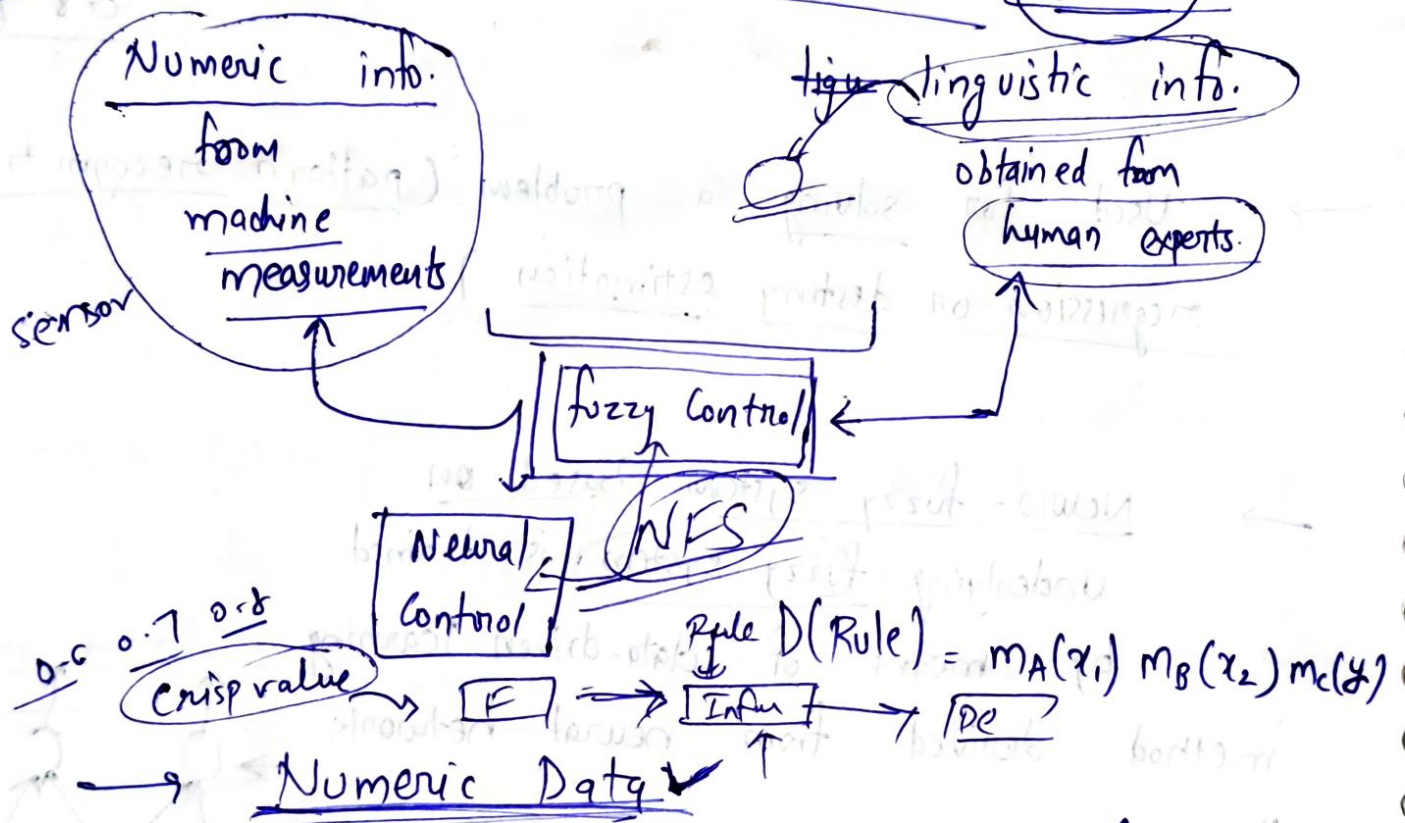 Numeric info.
from
machine
measurements
sensor
linguistic info.
obtained from
human experts.
fuzzy Control
NFS
Neural
Control
0.6 0.7 0.8
crisp value
F
Rule D(Rule) = m_A(x_1) m_B(x_2) m_C(y)
Infer
De
→ Numeric Data ✓